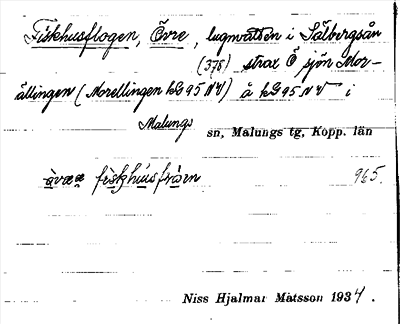 Fiskhusflogen, Övre, lugnvatten i Sälbergsån
(378) strax Ö sjön Mor-
ällingen (Morellingen kG95NV) å kG95NV i
Malungs sn, Malungs tg, Kopp. län
fiskhúusflógen 965.
Niss Hjalmar Matsson 1934.